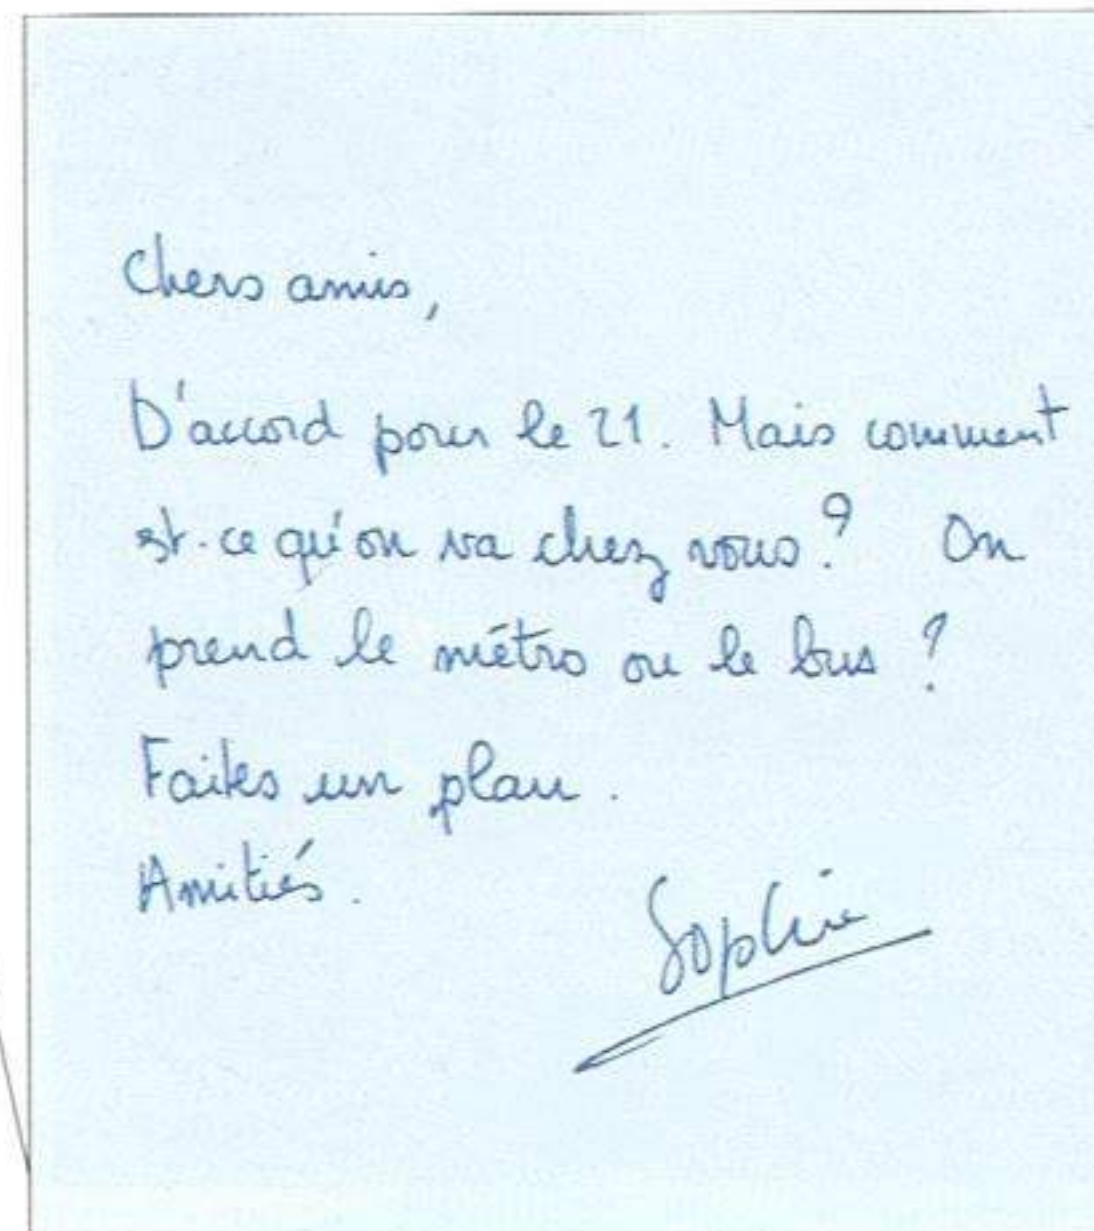 Chers amis,
D'accord pour le 21. Mais comment
est-ce qu'on va chez vous ? On
prend le métro ou le bus ?
Faites un plan.
Amitiés.
Sophie